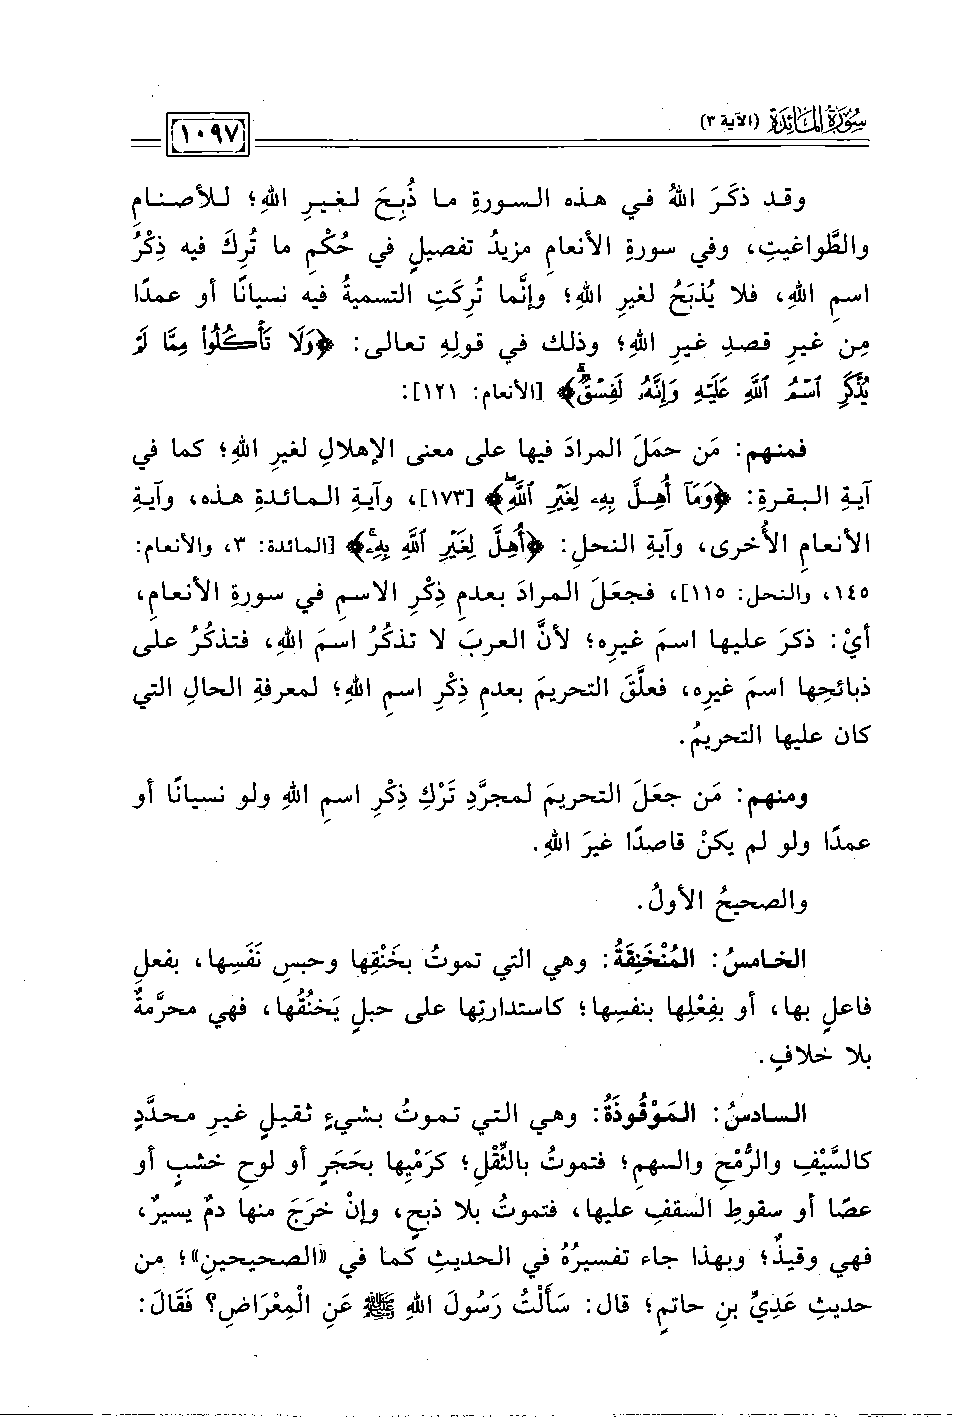 سُورَةُ المَائِدَةِ (الآية ٣)
١٠٩٧
وقد ذكَرَ اللهُ في هذه السورةِ ما ذُبِحَ لغيرِ اللهِ؛ للأصنامِ
والطَّواغيتِ، وفي سورةِ الأنعامِ مزيدُ تفصيلٍ في حُكْمِ ما تُرِكَ فيه ذِكْرُ
اسمِ اللهِ، فلا يُذبَحُ لغيرِ اللهِ؛ وإنَّما تُرِكَتِ التسميةُ فيه نسيانًا أو عمدًا
مِن غيرِ قصدِ غيرِ اللهِ؛ وذلك في قولِهِ تعالى: ﴿وَلَا تَأْكُلُوا۟ مِمَّا لَمْ
يُذْكَرِ ٱسْمُ ٱللَّهِ عَلَيْهِ وَإِنَّهُۥ لَفِسْقٌۗ﴾ [الأنعام: ١٢١]:
فمنهم: مَن حمَلَ المرادَ فيها على معنى الإهلالِ لغيرِ اللهِ؛ كما في
آيةِ البقرةِ: ﴿وَمَآ أُهِلَّ بِهِۦ لِغَيْرِ ٱللَّهِۖ﴾ [١٧٣]، وآيةِ المائدةِ هذه، وآيةِ
الأنعامِ الأُخرى، وآيةِ النحلِ: ﴿أُهِلَّ لِغَيْرِ ٱللَّهِ بِهِۦۚ﴾ [المائدة: ٣، والأنعام:
١٤٥، والنحل: ١١٥]، فجعَلَ المرادَ بعدمِ ذِكْرِ الاسمِ في سورةِ الأنعامِ،
أيْ: ذكرَ عليها اسمَ غيرِه؛ لأنَّ العربَ لا تذكُرُ اسمَ اللهِ، فتذكُرُ على
ذبائحِها اسمَ غيرِه، فعلَّقَ التحريمَ بعدمِ ذِكْرِ اسمِ اللهِ؛ لمعرفةِ الحالِ التي
كان عليها التحريمُ.
ومنهم: مَن جعَلَ التحريمَ لمجرَّدِ تَرْكِ ذِكْرِ اسمِ اللهِ ولو نسيانًا أو
عمدًا ولو لم يكنْ قاصدًا غيرَ اللهِ.
والصحيحُ الأولُ.
الخامسُ: المُنْخَنِقَةُ: وهي التي تموتُ بخَنْقِها وحبسِ نَفَسِها، بفعلِ
فاعلٍ بها، أو بفِعْلِها بنفسِها؛ كاستدارتِها على حبلٍ يَخنُقُها، فهي محرَّمةٌ
بلا خلافٍ.
السادسُ: المَوْقُوذَةُ: وهي التي تموتُ بشيءٍ ثقيلٍ غيرِ محدَّدٍ
كالسَّيْفِ والرُّمْحِ والسهمِ؛ فتموتُ بالثِّقْلِ؛ كرَمْيِها بحَجَرٍ أو لوحِ خشبٍ أو
عصًا أو سقوطِ السقفِ عليها، فتموتُ بلا ذبحٍ، وإنْ خرَجَ منها دمٌ يسيرٌ،
فهي وقيذٌ؛ وبهذا جاء تفسيرُهُ في الحديثِ كما في «الصحيحينِ»؛ من
حديثِ عَدِيِّ بنِ حاتمٍ؛ قال: سَأَلْتُ رَسُولَ اللهِ ﷺ عَنِ الْمِعْرَاضِ؟ فَقَالَ: